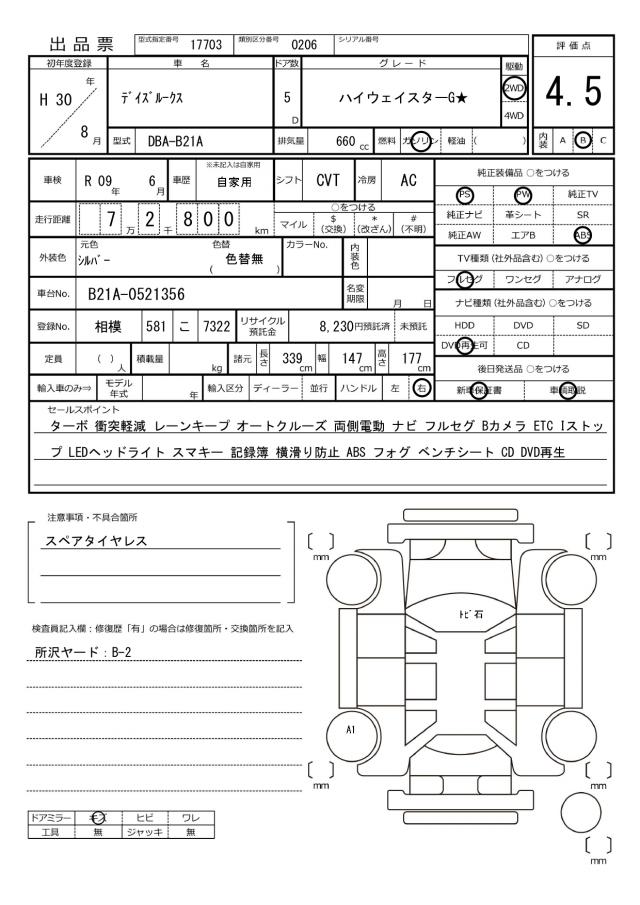 出品票 型式指定番号 17703 類別区分番号 0206 シリアル番号
評価点
4.5
内装 A B C
初年度登録 車名 ドア数 グレード 駆動
H 30 年 8 月 ﾃﾞｲｽﾞﾙｰｸｽ 5 D ハイウェイスターG★ 2WD 4WD
型式 DBA-B21A 排気量 660 cc 燃料 ガソリン 軽油 ( )
車検 R 09 年 6 月 車歴 ※未記入は自家用 自家用 シフト CVT 冷房 AC
走行距離 7 万 2 千 8 0 0 km ○をつける
マイル $ (交換) * (改ざん) # (不明)
外装色 元色 ｼﾙﾊﾞｰ 色替 ( 色替無 ) カラーNo. 内装色
車台No. B21A-0521356 名変期限 月 日
登録No. 相模 581 こ 7322 リサイクル預託金 8,230円預託済 未預託
定員 ( ) 人 積載量 kg 諸元 長さ 339 cm 幅 147 cm 高さ 177 cm
輸入車のみ⇒ モデル年式 年 輸入区分 ディーラー 並行 ハンドル 左 右
純正装備品 ○をつける
PS PW 純正TV
純正ナビ 革シート SR
純正AW エアB ABS
TV種類 (社外品含む) ○をつける
フルセグ ワンセグ アナログ
ナビ種類 (社外品含む) ○をつける
HDD DVD SD
DVD再生可 CD
後日発送品 ○をつける
新車保証書 車輌取説
セールスポイント
ターボ 衝突軽減 レーンキープ オートクルーズ 両側電動 ナビ フルセグ Bカメラ ETC Iストッ
プ LEDヘッドライト スマキー 記録簿 横滑り防止 ABS フォグ ベンチシート CD DVD再生
注意事項・不具合箇所
スペアタイヤレス
検査員記入欄：修復歴「有」の場合は修復箇所・交換箇所を記入
所沢ヤード：B-2
ドアミラー キズ ヒビ ワレ
工具 無 ジャッキ 無
〔 〕 mm
〔 〕 mm
ﾄﾋﾞ石
A1
〔 〕 mm
〔 〕 mm
〔 〕 mm